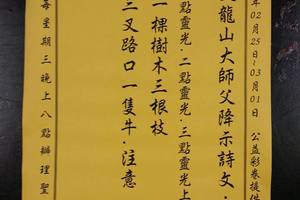 年02月25日~03月01日 公益彩券提供
龍山大師父降示詩文·
三點靈光·二點靈光·三點靈光上
一棵樹木三根枝
三叉路口一隻牛·注意
每星期三晚上八點辦理聖